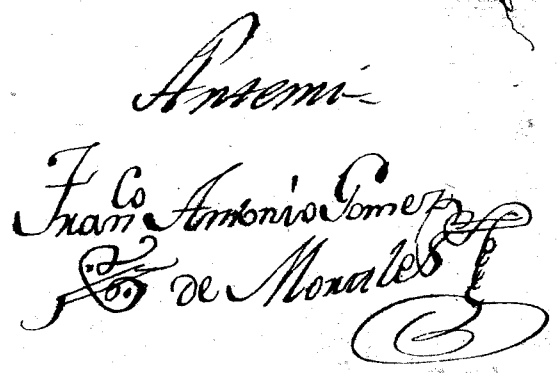 Antemi
Fran^co Antonio Gomez
de Morales